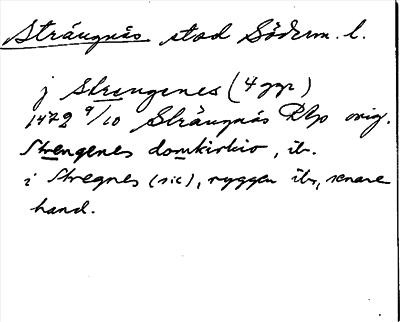 Strängnäs stad Söderm. l.
j Strengenes (4 ggr)
1472 9/10 Strängnäs Dkp orig.
Strengenes domkirkio, ib.
i Stregnes (sic), ryggen ib, senare
hand.